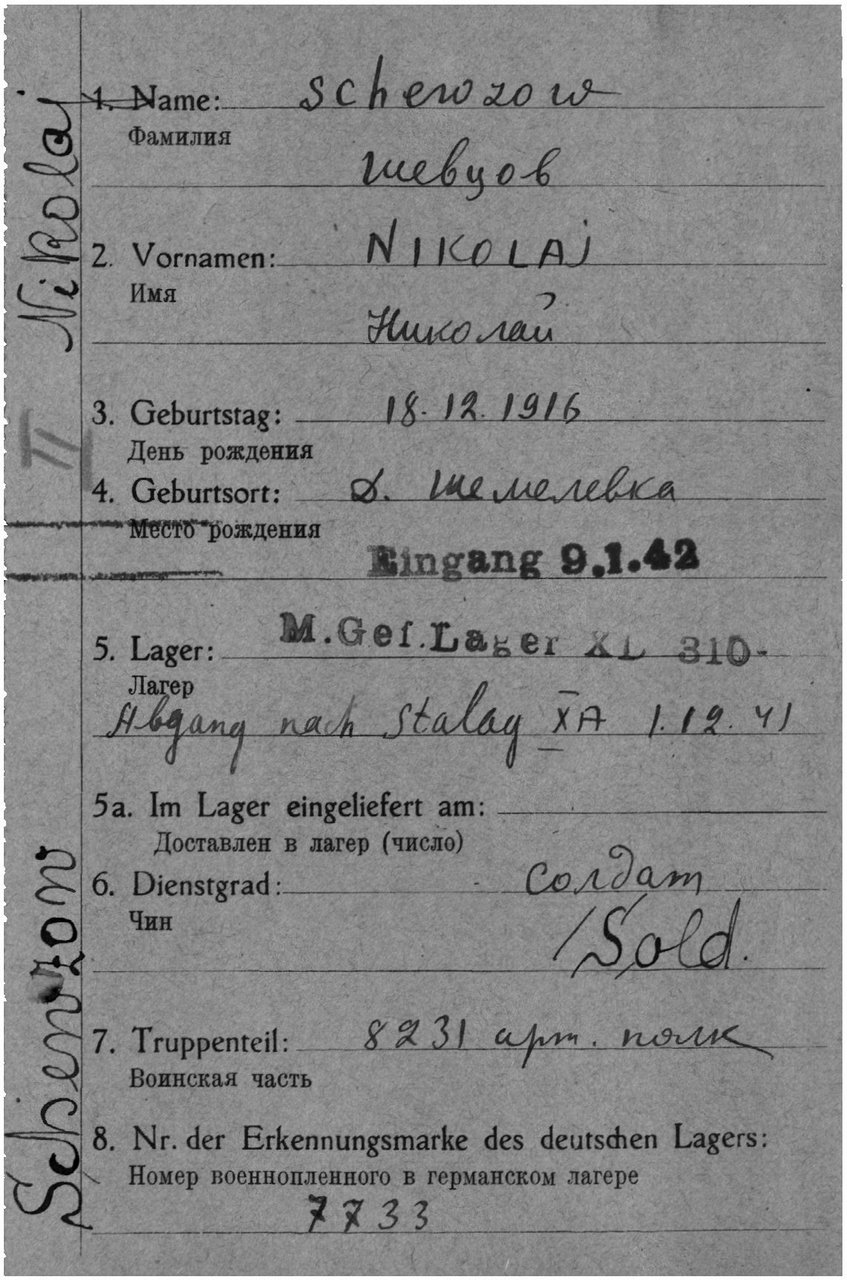 1. Name: Schewzow
Фамилия
Шевцов
2. Vornamen: NIKOLAJ
Имя
Николай
3. Geburtstag: 18.12.1916
День рождения
4. Geburtsort: д. Шемелевка
Место рождения
Eingang 9.1.42
5. Lager: M.Gef.Lager XL 310-
Лагер
Abgang nach Stalag XA 1.12.41
5a. Im Lager eingeliefert am:
Доставлен в лагер (число)
6. Dienstgrad: солдат
Чин
/Sold.
7. Truppenteil: 8231 арт. полк
Воинская часть
8. Nr. der Erkennungsmarke des deutschen Lagers:
Номер военнопленного в германском лагере
7733
Schewzow Nikolaj
II